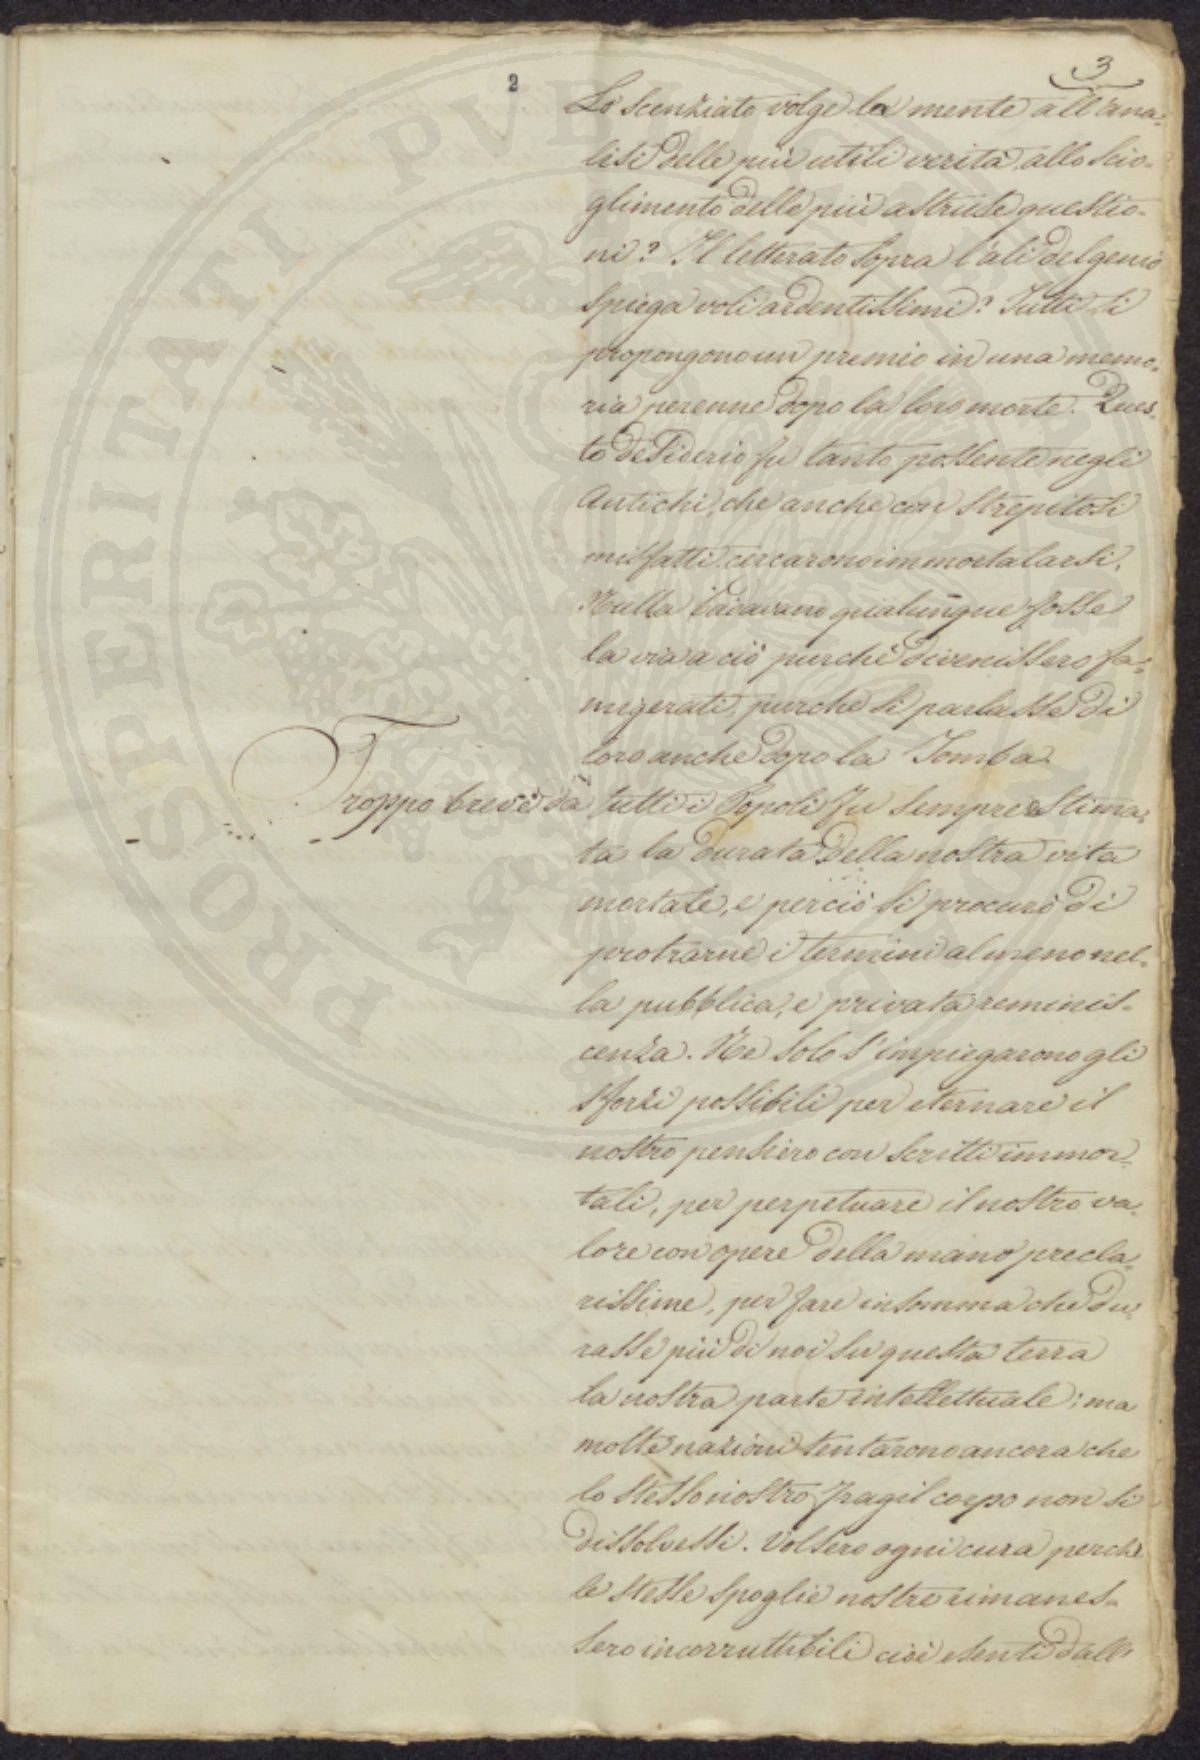 3
2
Lo scenziato volge la mente all'ana-
lisi delle più utili verità, allo scio-
glimento delle più astruse questio-
ni? Il letterato sopra l'ali del genio
spiega voli ardentissimi? Tutti si
propongono un premio in una memo-
ria perenne dopo la loro morte. Ques-
to desiderio fu tanto possente negli
Antichi, che anche con strepitosi
misfatti cercarono immortalarsi.
Nulla badavano qualunque fosse
la via a ciò purchè divenissero fa-
migerati, purchè si parlasse di
loro anche dopo la Tomba.
Troppo breve da tutti i Popoli fu sempre stima-
ta la durata della nostra vita
mortale, e perciò si procurò di
protrarne i termini almeno nel-
la pubblica, e privata reminis-
cenza. Ne solo s'impiegarono gli
sforzi possibili per eternare il
nostro pensiero con scritti immor-
tali, per perpetuare il nostro va-
lore con opere della mano precla-
rissime, per fare insomma che du-
rasse più di noi su questa terra
la nostra parte intellettuale; ma
molte nazioni tentarono ancora che
lo stesso nostro fragil corpo non si
dissolvessi. Volsero ogni cura perchè
le stesse spoglie nostre rimanes-
sero incorruttibili cioè esenti dall'
PROSPERITATI PVBLICAE